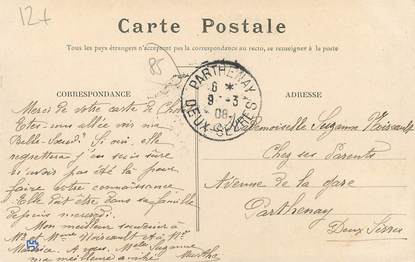 12+
Carte Postale
Tous les pays étrangers n'acceptent pas la correspondance au recto, se renseigner à la poste
85
CORRESPONDANCE
Merci de votre carte de
Etes vous allée voir ma
Belle Soeur? Si oui, elle
regrettera j'en suis sûre
n'avoir pas été là pour
faire votre connaissance
Elle doit être dans sa famille
depuis mercredi.
Mon meilleur souvenir à
Mr et Mme Noirault et à Mr
Maurice. A vous, Melle Suzanne
ma meilleure amitié Marthe
PARTHENAY
6 *
9 - 3
08
DEUX-SÈVRES
ADRESSE
Mademoiselle Suzanne Noirault
Chez ses Parents
Avenue de la gare
Parthenay
Deux Sèvres